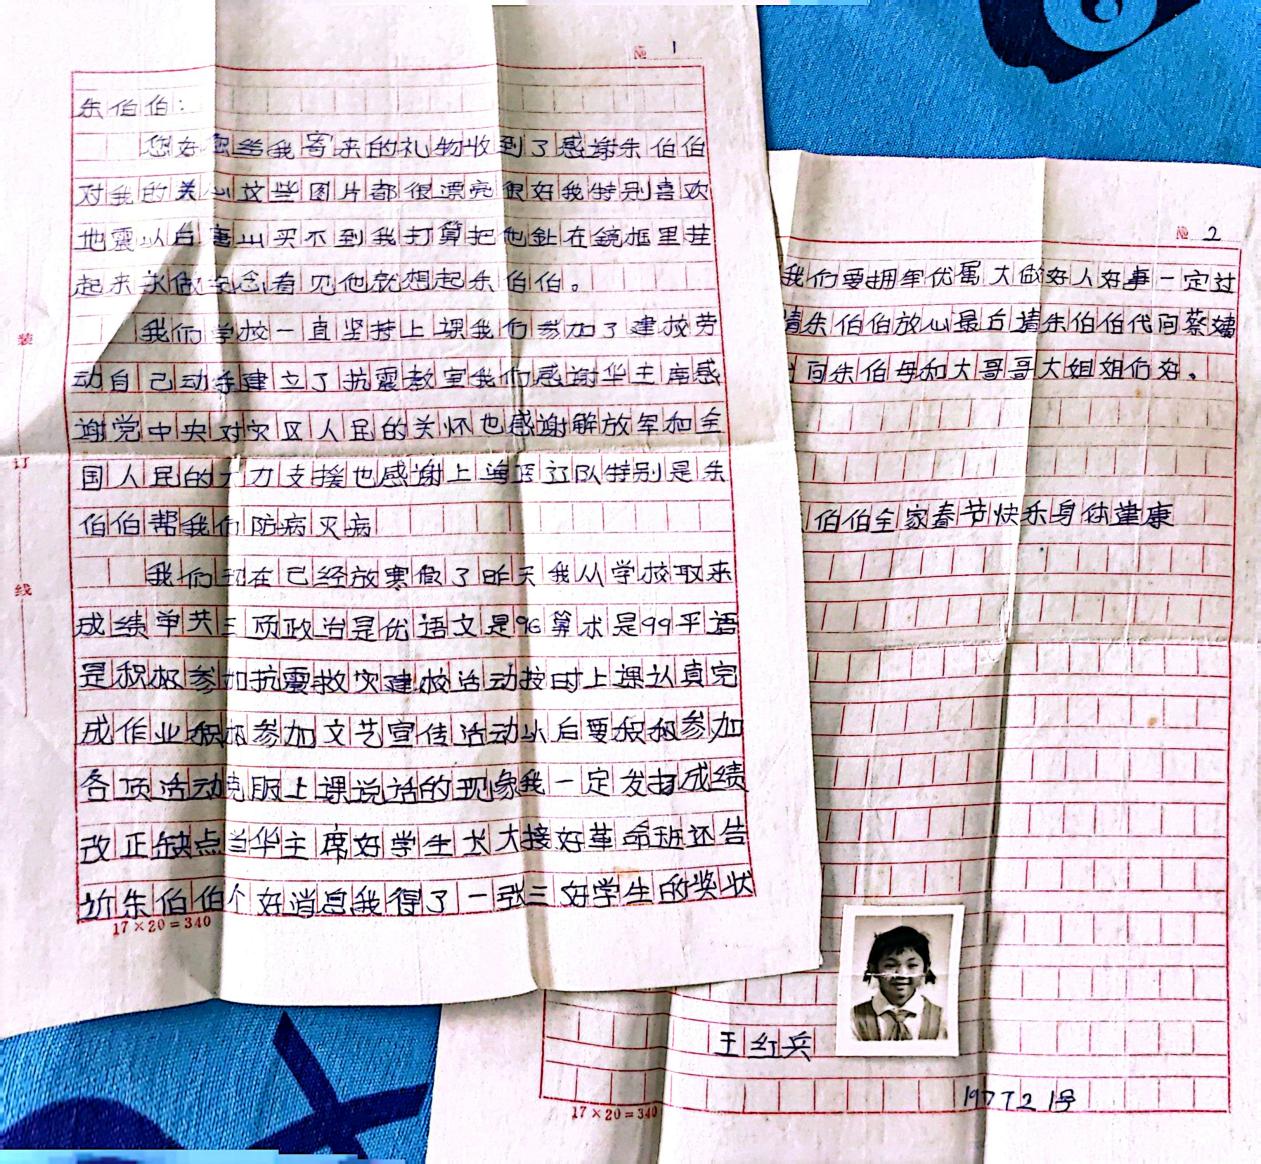 № 1
朱伯伯：
您好您给我寄来的礼物收到了感谢朱伯伯
对我的关心这些图片都很漂亮很好我特别喜欢
地震以后唐山买不到我打算把他钉在镜框里挂
起来永做纪念看见他就想起朱伯伯。
我们学校一直坚持上课我们参加了建校劳
动自己动手建立了抗震教室我们感谢华主席感
谢党中央对灾区人民的关怀也感谢解放军和全
国人民的大力支援也感谢上海医辽队特别是朱
伯伯帮我们防病灭病
我们现在已经放寒假了昨天我从学校取来
成绩单共三项政治是优语文是96算术是99平语
是积极参加抗震救灾建校活动按时上课认真完
成作业积极参加文艺宣传活动以后要积极参加
各项活动克服上课说话的现象我一定发扬成绩
改正缺点当华主席好学生长大接好革命班还告
诉朱伯伯个好消息我得了一张三好学生的奖状
17×20=340
装
订
线
№ 2
我们要拥军优属大做好人好事一定过
请朱伯伯放心最后请朱伯伯代问蔡
问朱伯母和大哥哥大姐姐们好.
伯伯全家春节快乐身体健康
王红兵
1977 2 1号
17×20=340